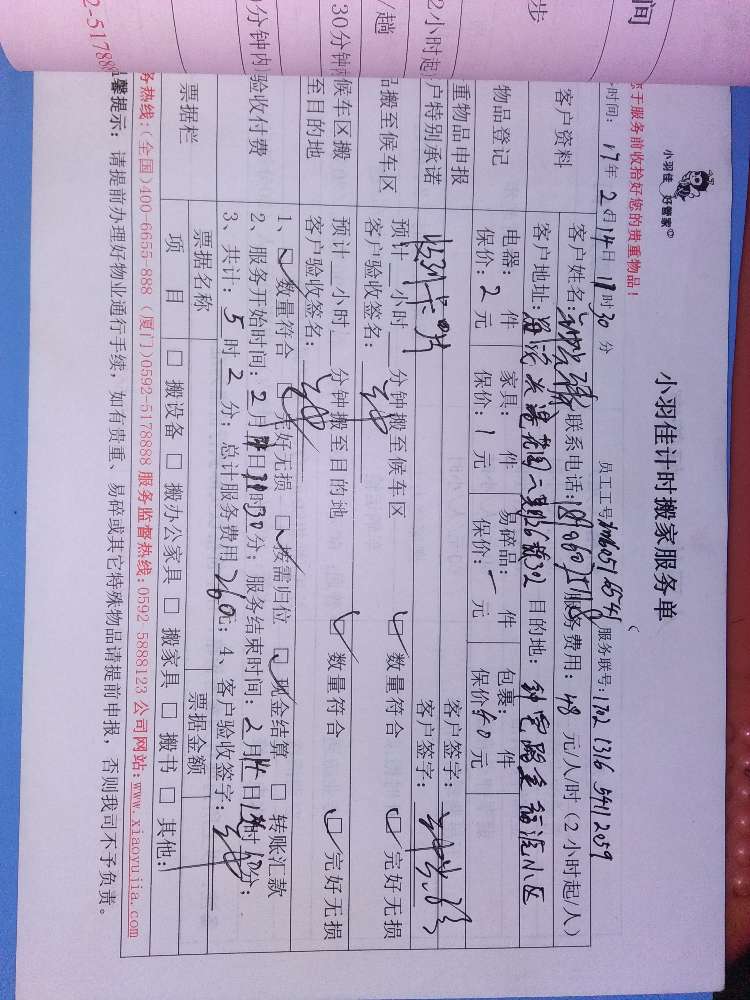 间
步
2小时起
/趟
30分钟
0分钟内
2-517888
小羽佳 好管家
小羽佳计时搬家服务单
于服务前收拾好您的贵重物品！
时间: 17年2月14日 11时30分 员工工号 服务联号: 1702 1316 5411 2059
客户资料
客户姓名: 联系电话: 服务费用: 48 元/人/时 (2小时起/人)
客户地址: 花园二期 302 目的地: 福源小区
物品登记
电器: 件 家具: 件 易碎品: 件 包裹: 件
保价: 2 元 保价: 1 元 保价: 元 保价: 40 元
重物品申报
客户签字:
户特别承诺
客户签字:
品搬至候车区
预计 小时 分钟搬至候车区 数量符合 完好无损
客户验收签名:
候车区搬
至目的地
预计 小时 分钟搬至目的地 数量符合 完好无损
客户验收签名:
验收付费
1、 数量符合 完好无损 按需归位 现金结算 转账汇款
2、服务开始时间: 2月14日 时30分; 服务结束时间: 2月14日 时 分;
3、共计: 5 时 2 分; 总计服务费用 260 元; 4、客户验收签字:
票据栏
票据名称 票据金额
项 目 搬设备 搬办公家具 搬家具 搬书 其他:
务热线:(全国)400-6655-888 (厦门)0592-5178888 服务监督热线:0592-5888123 公司网站:www.xiaoyujia.com
馨提示: 请提前办理好物业通行手续, 如有贵重、易碎或其它特殊物品请提前申报, 否则我司不予负责。